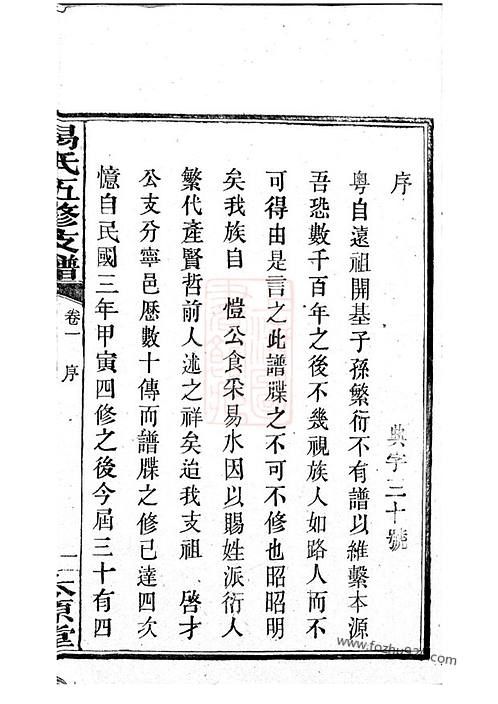 典字三十號
序
粵自遠祖開基子孫繁衍不有譜以維繫本源
吾恐數千百年之後不幾視族人如路人而不
可得由是言之此譜牒之不可不修也昭昭明
矣我族自 愷公食采易水因以賜姓派衍人
繁代產賢哲前人述之祥矣迨我支祖 啓才
公支分寧邑歷數十傳而譜牒之修已達四次
憶自民國三年甲寅四修之後今屆三十有四
易氏五修支譜
卷一 序
二
太原堂
www.fozhu920.com